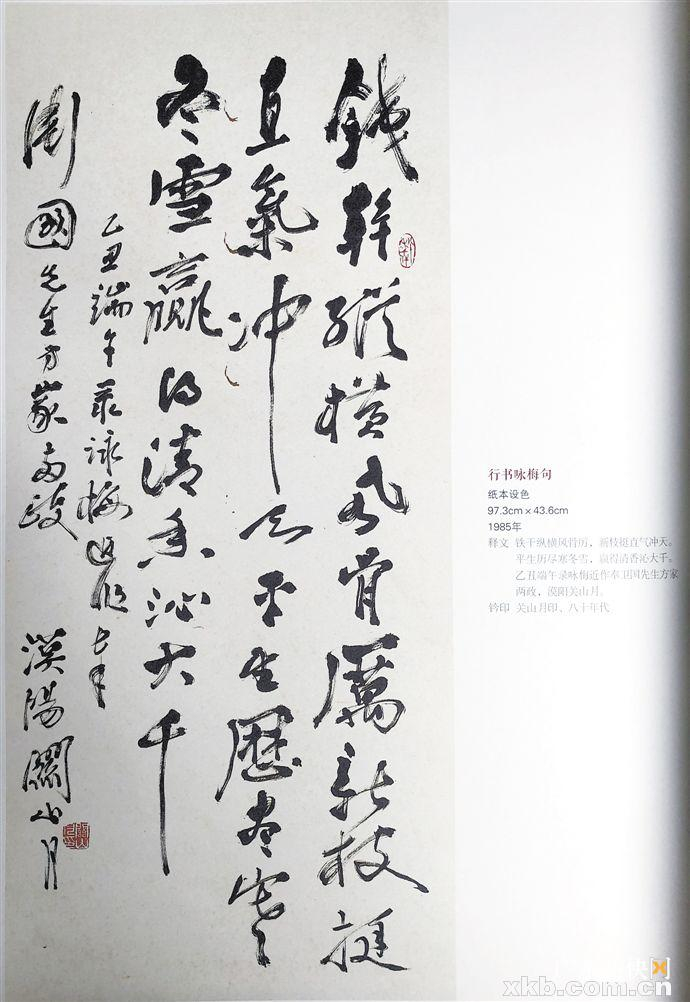 鐵幹縱橫風骨厲新枝挺
直氣冲天平生歷盡寒
冬雪贏得清香沁大千
乙丑端午录詠梅近作奉
衛國先生方家两政 漠陽關山月
行书咏梅句
纸本设色
97.3cm×43.6cm
1985年
释文 铁干纵横风骨历，新枝挺直气冲天。
平生历尽寒冬雪，赢得清香沁大千。
乙丑端午录咏梅近作奉卫国先生方家
两政，漠阳关山月。
钤印 关山月印、八十年代
xkb.com.cn